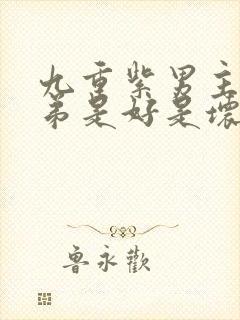 九重紫男主
弟是好是壞
鲁永歡